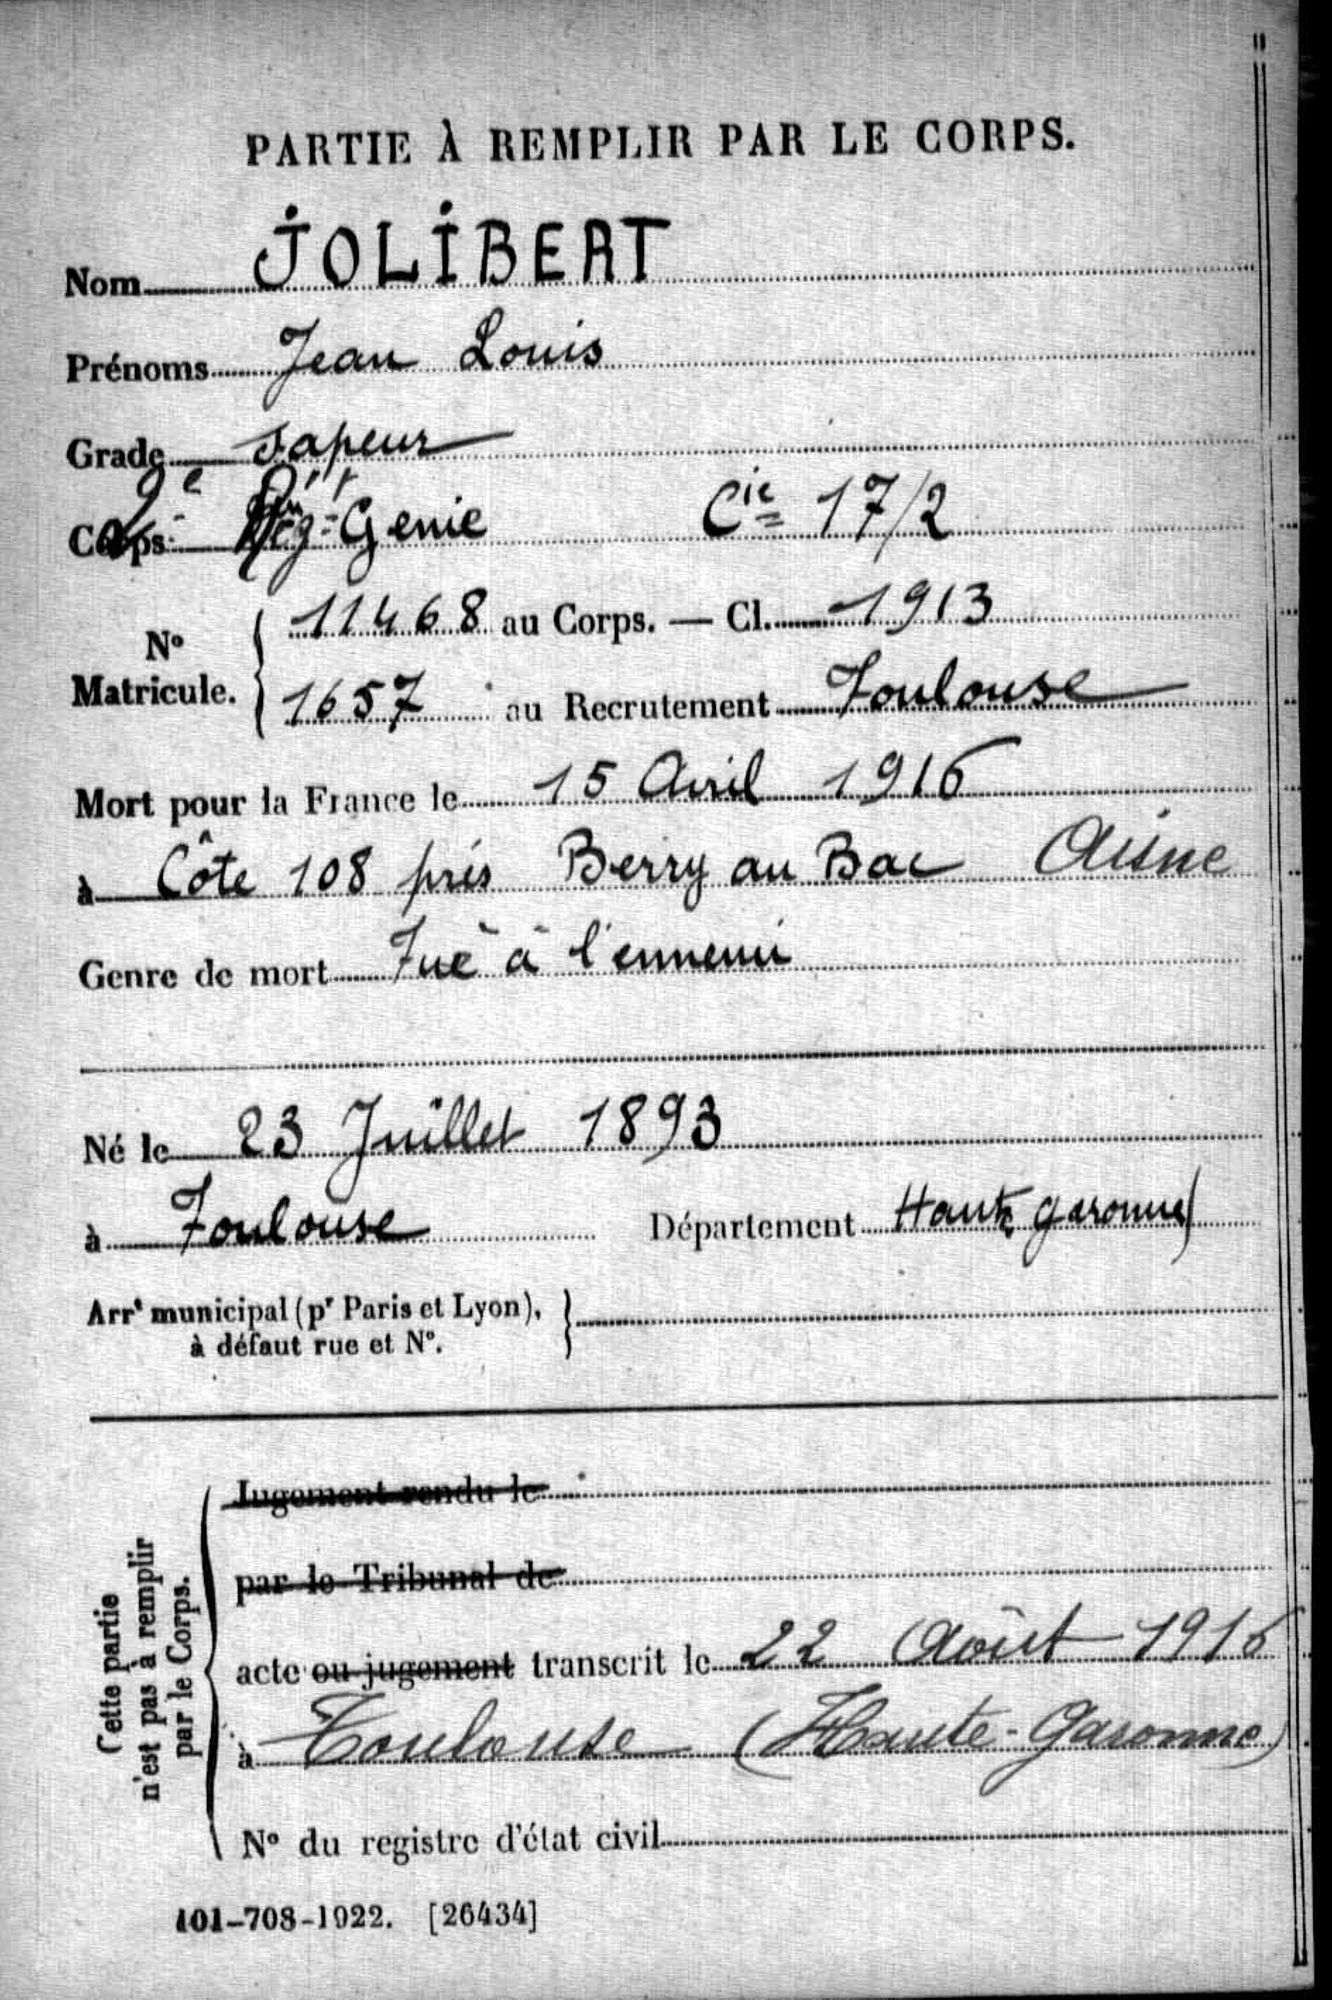 PARTIE À REMPLIR PAR LE CORPS.
Nom JOLIBERT
Prénoms Jean Louis
Grade Sapeur
Corps 2e Génie Cie 17/2
No Matricule. 11468 au Corps. — Cl. 1913
1657 au Recrutement Toulouse
Mort pour la France le 15 Avril 1916
à Côte 108 près Berry au Bac Aisne
Genre de mort Tué à l'ennemi
Né le 23 Juillet 1893
à Toulouse Département Haute Garonne
Arrt municipal (pr Paris et Lyon),
à défaut rue et No.
Cette partie
n'est pas à remplir
par le Corps.
Jugement rendu le
par le Tribunal de
acte ou jugement transcrit le 22 Août 1916
à Toulouse (Haute-Garonne)
No du registre d'état civil
101-708-1922. [26434]